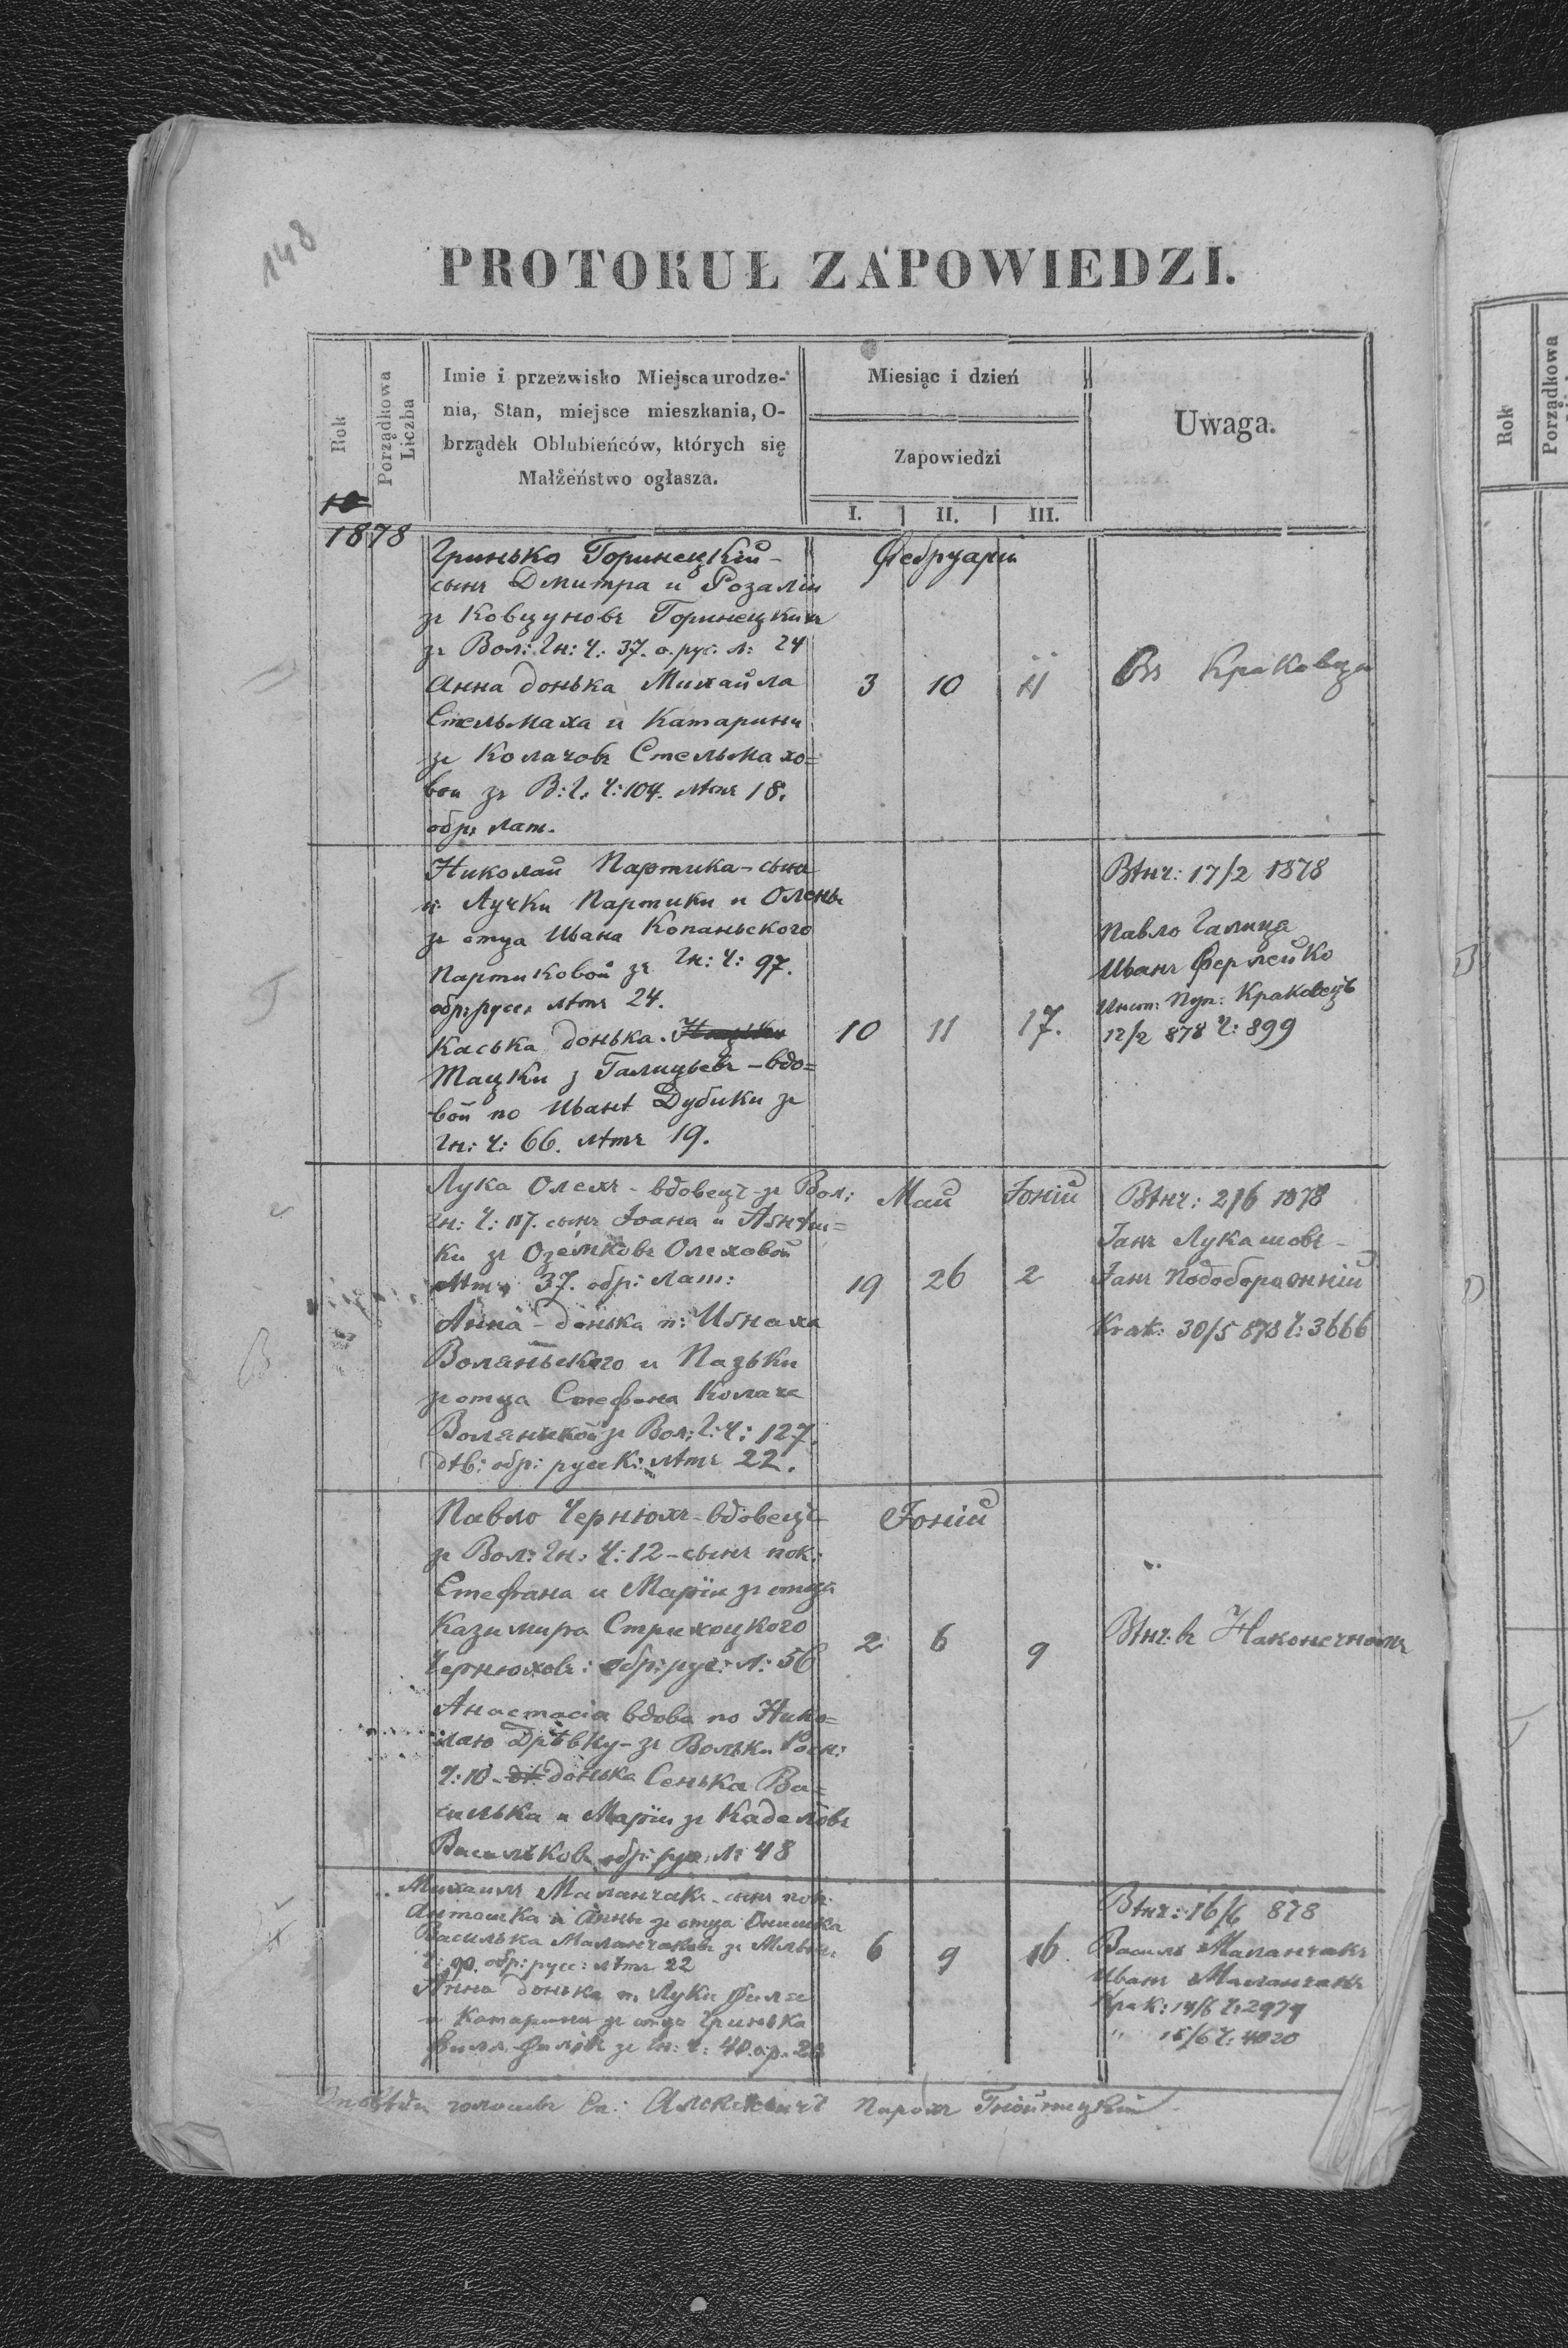 148
PROTOKUŁ ZAPOWIEDZI.
Rok
Porządkowa Liczba
Imie i przezwisko Miejsca urodze-
nia, Stan, miejsce mieszkania, O-
brządek Oblubieńców, których się
Małżeństwo ogłasza.
Miesiąc i dzień
Zapowiedzi
I. II. III.
Uwaga.
1878
Гринько Горинецкій -
сынъ Дмитра и Розаліи
зъ Ковцуновъ Горинецкихъ
зъ Вол: Гн: Ч: 37. о. рус: л: 24
Анна донька Михайла
Стельмаха и Катарины
зъ Колачовъ Стельмахо=
вои зъ В: Г. Ч: 104. лѣтъ 18.
обр: лат.
Фебруарій
3 10 11
Въ Краковци
Николай Партика - сынъ
п: Лучки Партики и Олены
зъ отца Ивана Копаньского
Партиковой зъ Гн: Ч: 97.
обр: русс. лѣтъ 24.
Каська донька
Мацки з Галицѣвъ - вдо=
вой по Иванѣ Дубики зъ
Гн: Ч: 66. лѣтъ 19.
10 11 17.
Вѣнч: 17/2 1878
Павло Галица
Иванъ Ферлейко
Краковецъ
12/2 878 Ч: 899
Лука Олехъ - вдовецъ - зъ Вол:
Гн: Ч: 117. сынъ Іоана и
ки зъ Оземковъ Олеховой
лѣтъ 37. обр: лат:
Анна - донька п: Игнаха
Воляньского и Пазьки
зъ отца Стефана Колача
Воляньской зъ Вол: Г: Ч: 127.
дѣв: обр: русск: лѣтъ 22.
Май Іюній
19 26 2
Вѣнч: 2/6 1878
Янъ Лукашовъ -
Янъ Подображній
Krak: 30/5 878 Ч: 3666
Павло Чернюхъ - вдовецъ
зъ Вол: Гн: Ч: 12 - сынъ пок:
Стефана и Маріи зъ отца
Казимира Стрихоцкого
Чернюховъ: обр: рус: л: 56
Анастасіа вдова по Нико=
лаю Дрѣвку - зъ Вольки Росн:
Ч: 10 - донька Сенька Ва=
силька и Маріи зъ Каделовъ
Васильковъ обр: рус. л: 48
Іюній
2 6 9
Вѣнч: въ Наконечномъ
Михаилъ Маланчакъ - сынъ пок.
Антошка и Анны зъ отца Онишка
Василька Маланчаковъ зъ
Ч: 90. обр: русс: лѣтъ 22
Анна донька п. Луки Филя
и Катарины зъ отца Гринька
зъ Гн: Ч: 40.
6 9 16.
Вѣнч: 16/6 878
Василь Маланчакъ
Иванъ Маланчакъ
Крак: 14/6 Ч: 2979
" 15/6 Ч: 4020
голошенъ Парохъ
Rok
Porządkowa